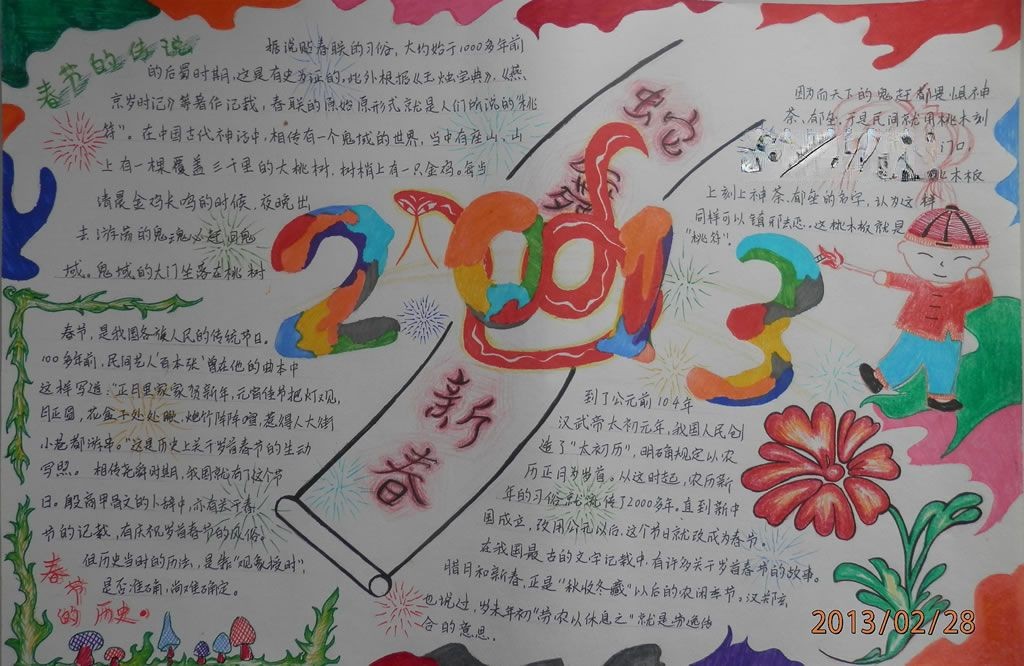 春节的传说
据说贴春联的习俗，大约始于1000多年前
的后蜀时期，这是有史为证的，此外根据《玉烛宝典》，《燕
京岁时记》等著作记载，春联的原始形式就是人们所说的"桃
符"。在中国古代神话中，相传有一个鬼域的世界，当中有座山，山
上有一棵覆盖三千里的大桃树，树梢上有一只金鸡。每当
清晨金鸡长鸣的时候，夜晚出
去游荡的鬼魂必赶回鬼
域。鬼域的大门坐落在桃树
因为而天下的鬼都畏惧神
茶、郁垒，于是民间就用桃木刻
门口，
木板
上刻上神茶、郁垒的名字，认为这样
同样可以镇邪去恶。这桃木板就是
"桃符"。
蛇
2013
新
春
春节，是我国各族人民的传统节日，
100多年前，民间艺人'百本张'曾在他的曲本中
这样写道："正月里家家贺新年，元宵佳节把灯观，
月正圆，花盒子处处瞅，炮竹阵阵喧，惹得人大街
小巷都游串。"这是历史上关于岁首春节的生动
写照。相传尧舜时期，我国就有了这个节
日。殷商甲骨文的卜辞中，亦有关于春
坊的记载，有庆祝岁首春节的风俗。
但历史当时的历法，是靠"观象授时"，
是否准确，尚难确定。
春节的历史。
到了公元前104年
汉武帝太初元年，我国人民创
造了"太初历"，明确规定以农
历正月为岁首。从这时起，农历新
年的习俗就流传了2000多年，直到新中
国成立，改用公元以后，这个节日就改成为春节。
在我国最古的文字记载中，有许多关于岁首春节的故事。
腊月和新春，正是"秋收冬藏"以后的农闲季节。汉郑玄
也说过，岁末年初"劳农以休息之"就是劳逸结
合的意思。
2013/02/28